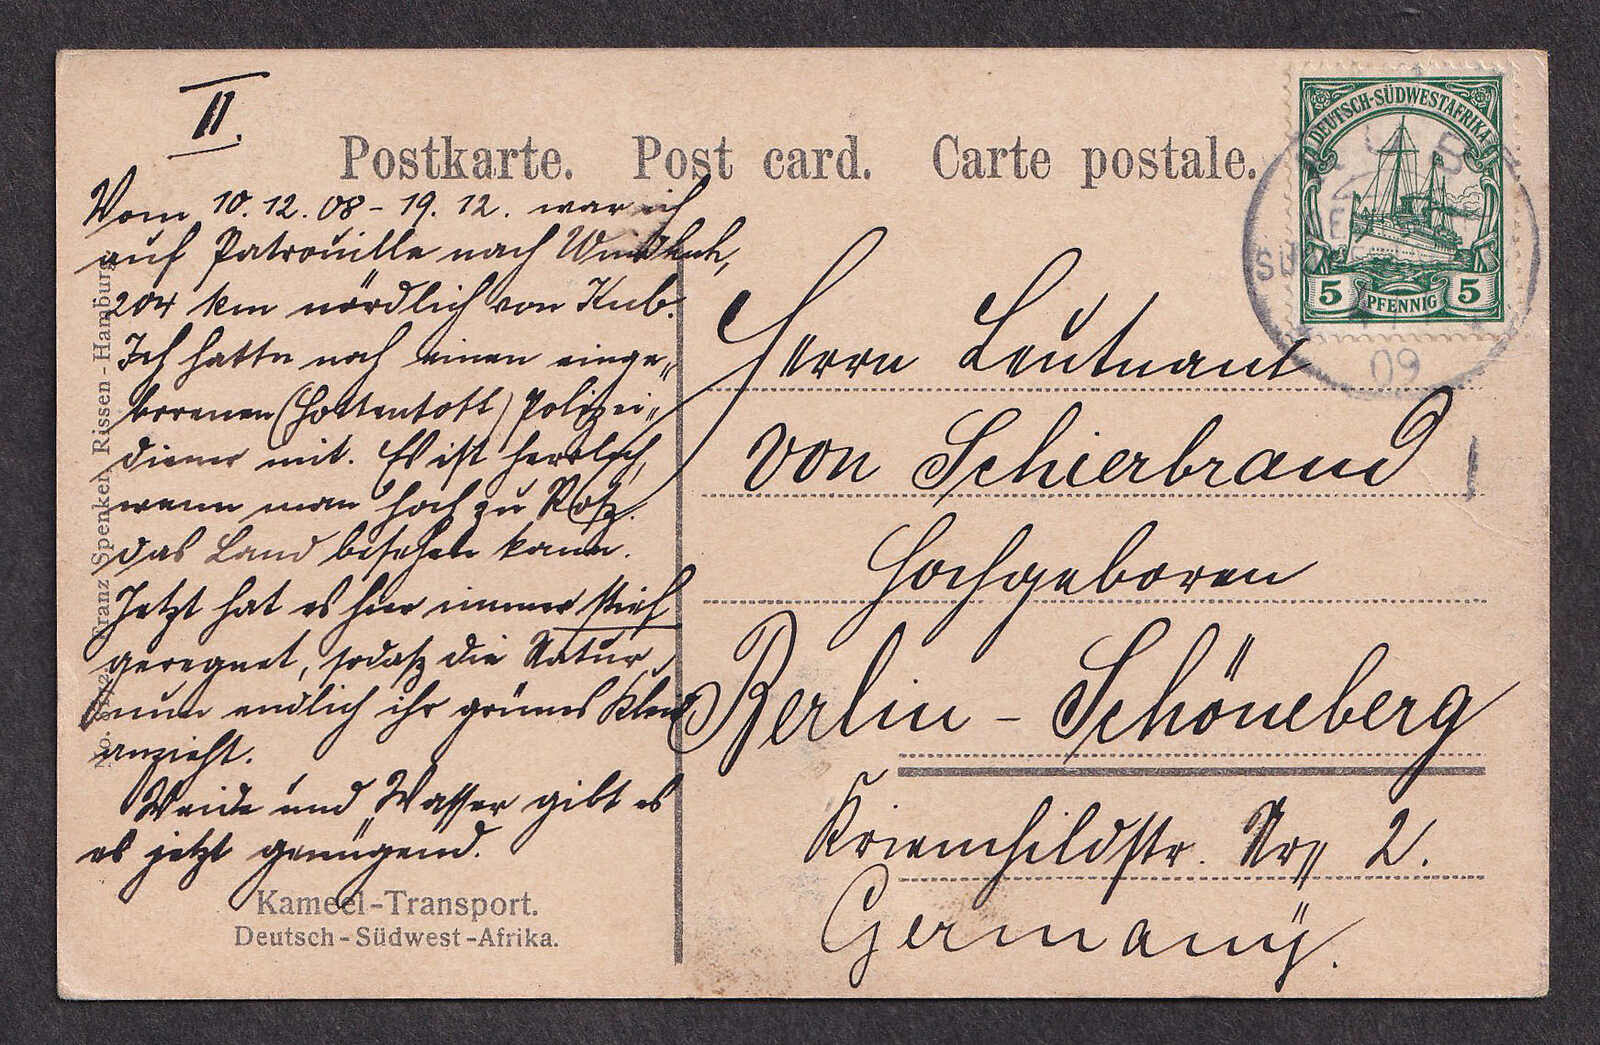 II.
Postkarte. Post card. Carte postale.
Vom 10.12.08 - 19.12. war ich
auf Patrouille nach Windhuk,
204 km nördlich von Kub.
Ich hatte noch einen einge„
borenen (Hottentott) Polizei„
diener mit. Es ist herrlich,
wenn man hoch zu Roß
das Land besehen kann.
Jetzt hat es hier immer steif
geregnet, sodaß die Natur
nun endlich ihr grünes Kleid
anzieht.
Weide und Wasser gibt es
es jetzt genügend.
Kameel-Transport.
Deutsch-Südwest-Afrika.
Franz Spenker, Rissen-Hamburg.
DEUTSCH-SÜDWESTAFRIKA
5 PFENNIG 5
KUB
09
Herrn Leutnant
von Schierbrand
Hochgeboren
Berlin - Schöneberg
Kriemhildstr. Nr. 2.
Germany.